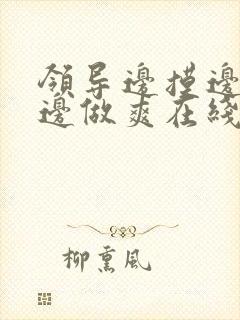 領导邊摸邊
邊做爽在綫
柳熏风